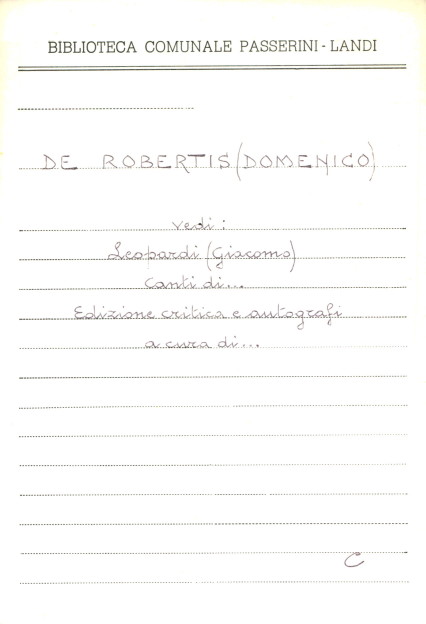 BIBLIOTECA COMUNALE PASSERINI - LANDI
DE ROBERTIS (DOMENICO)
vedi :
Leopardi (Giacomo)
Canti di...
Edizione critica e autografi
a cura di...
C